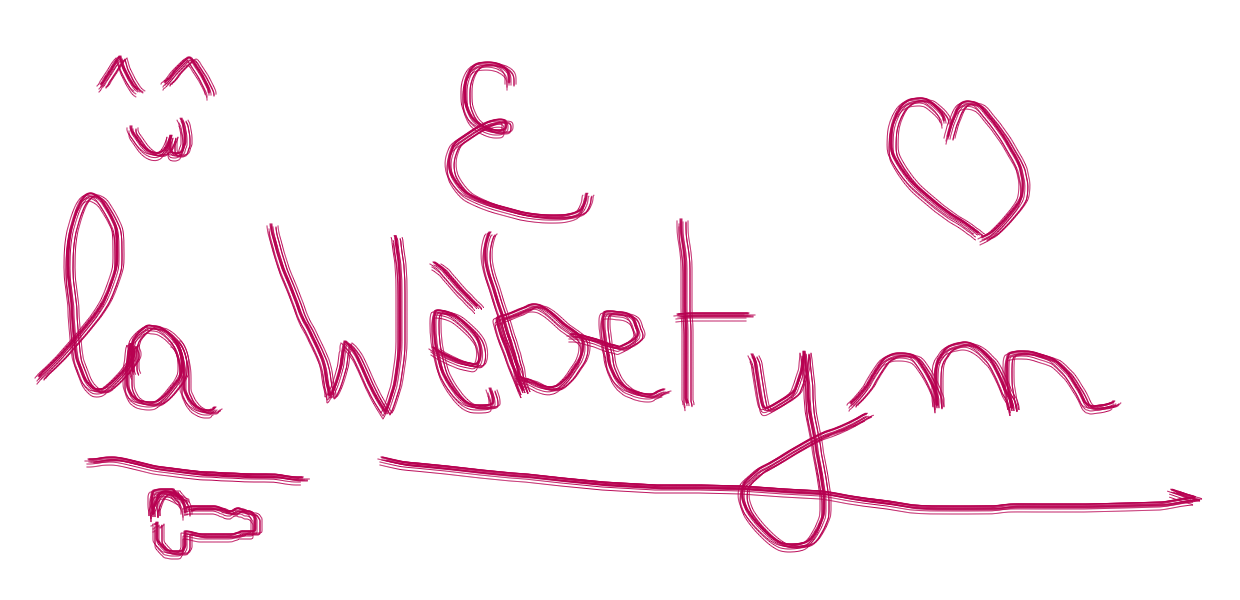 &
la Wèbetym